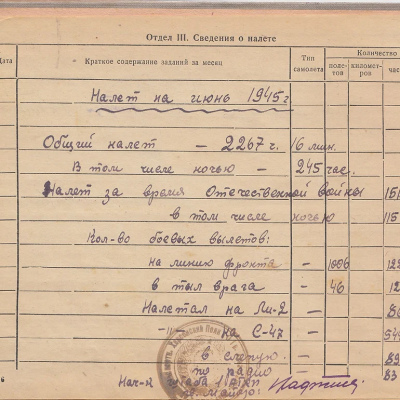 Отдел III. Сведения о налете
Дата
Краткое содержание заданий за месяц
Тип самолета
Количество
полетов
километров
час
Налет на июнь 1945г
Общий налет — 2267 ч. 16 мин.
В том числе ночью — 245 час.
Налет за время Отечественной войны 151
в том числе ночью 115
Кол-во боевых вылетов:
на линию фронта — 1006 122
в тыл врага — 46 12
Налетал на Ли-2 —
-"- на С-47 — 544
в слепую — 89
по радио — 83
Нач-к штаба
6